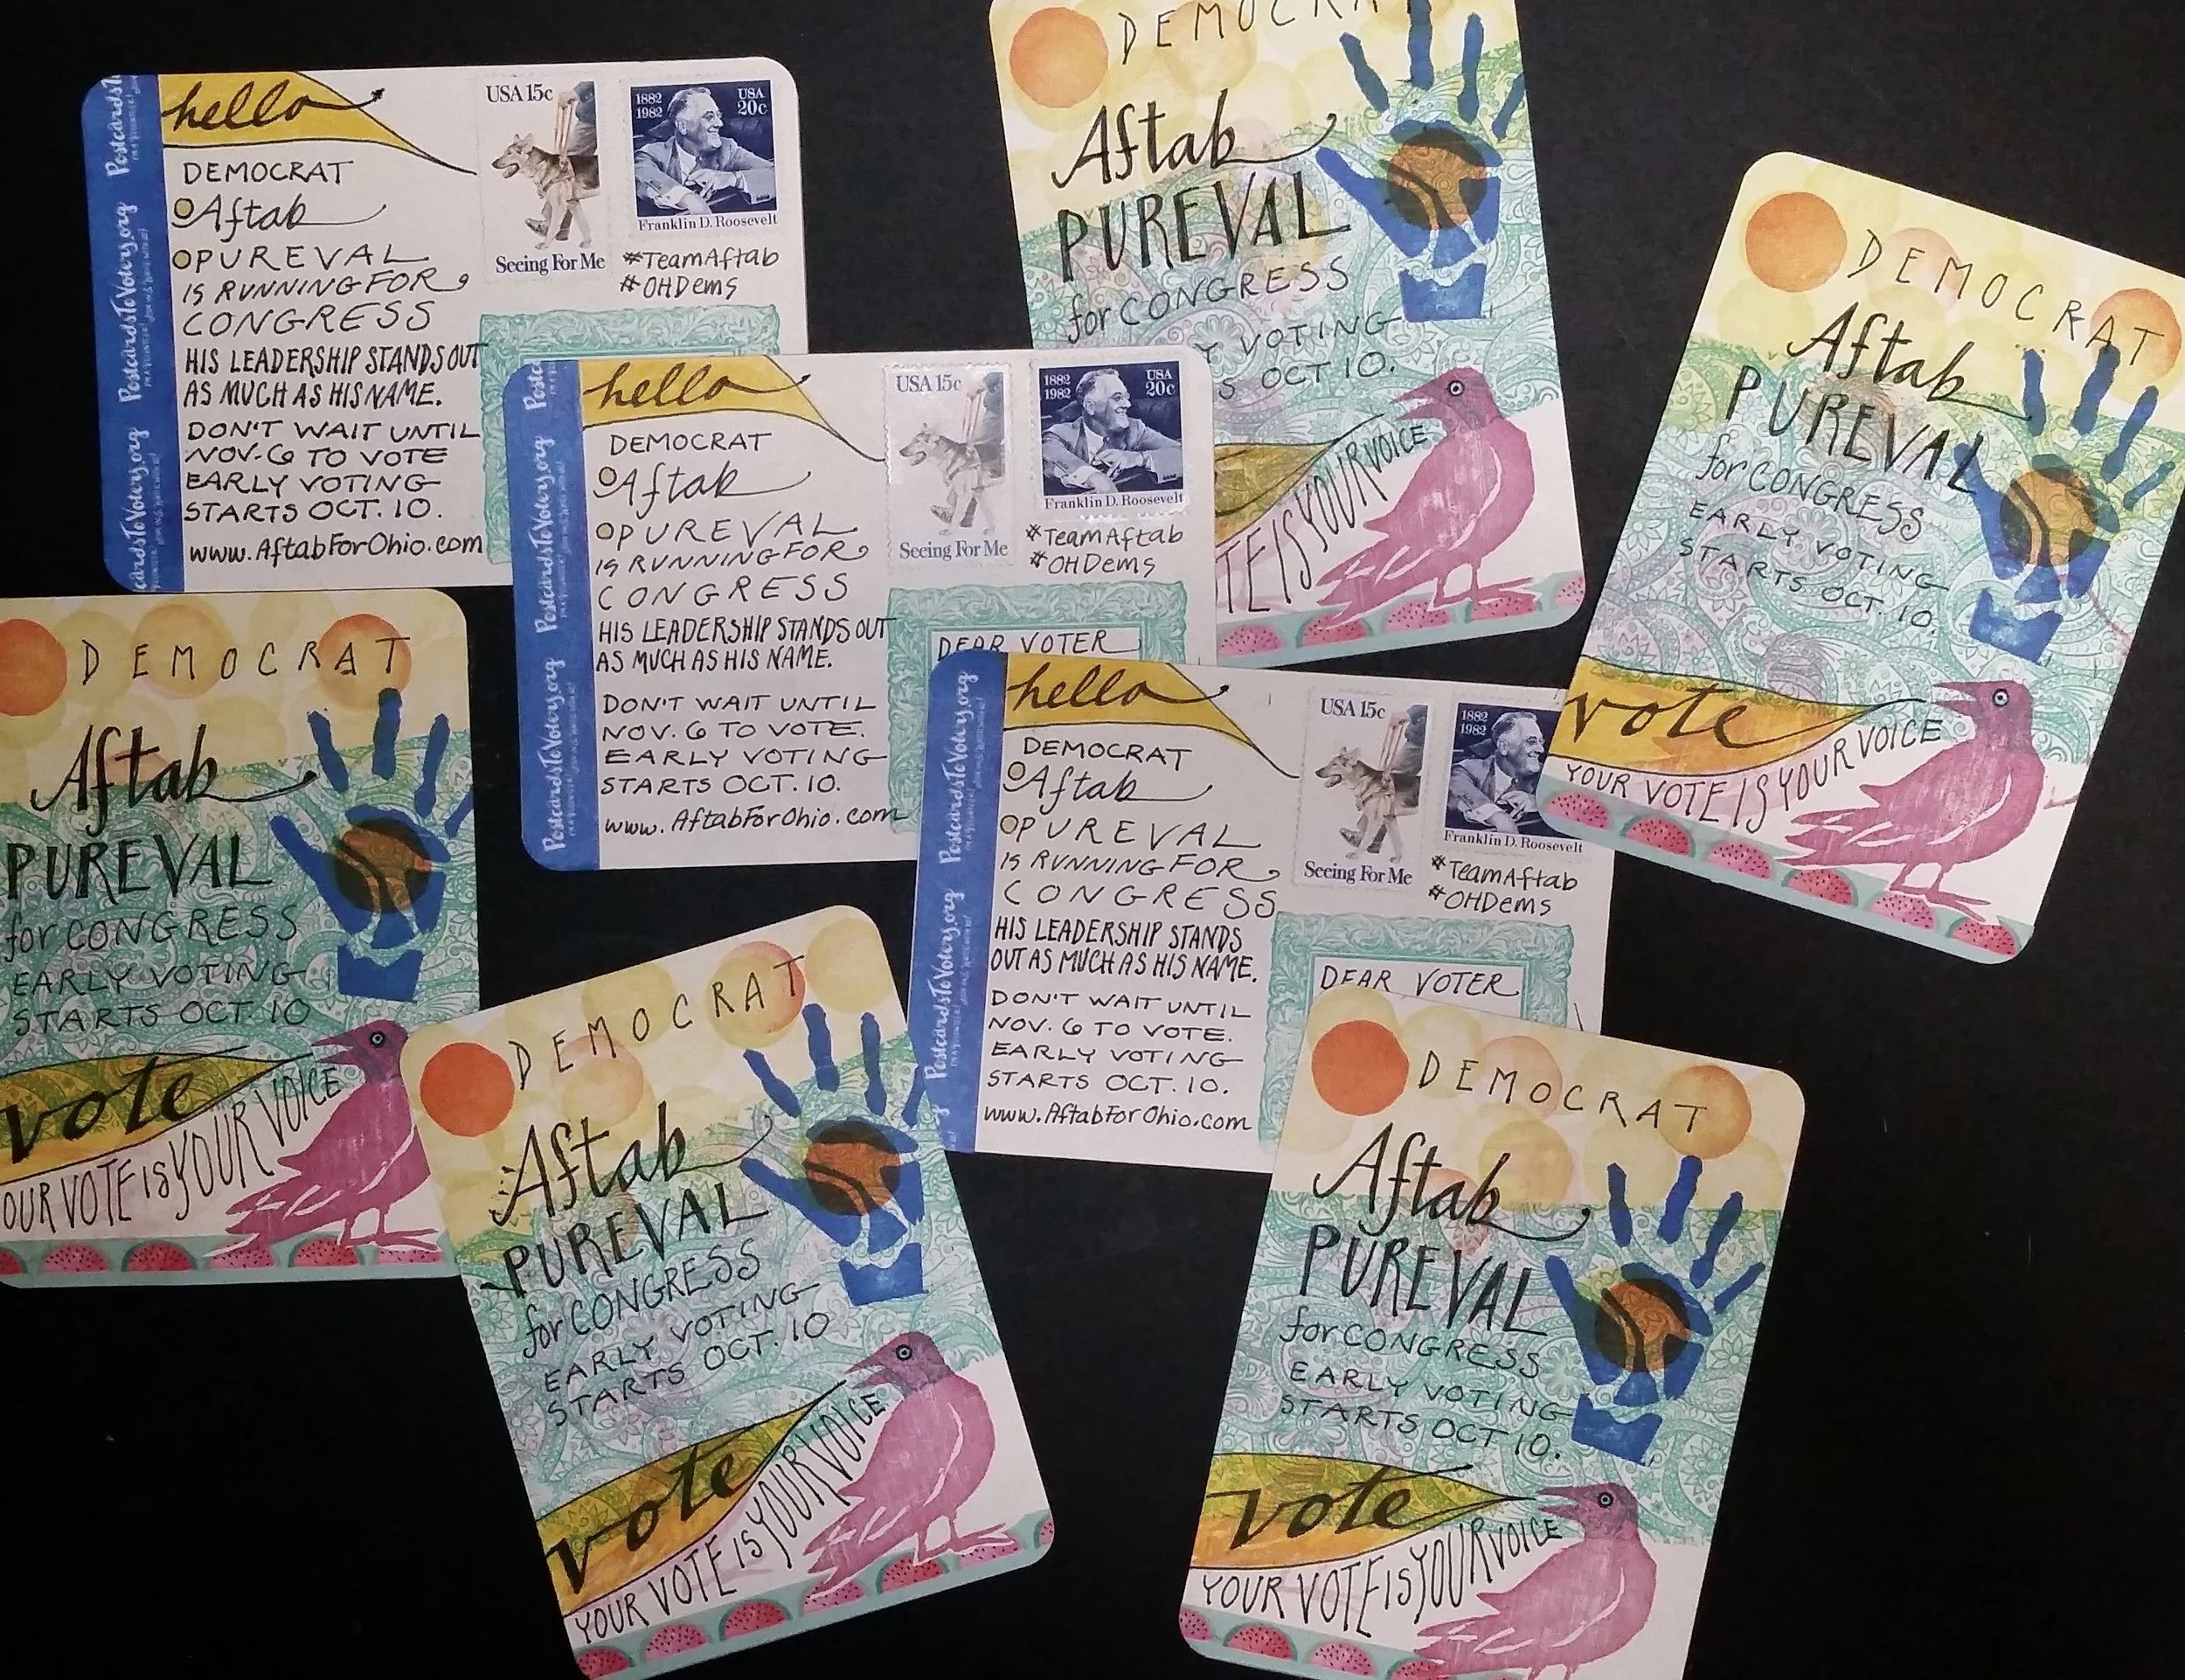 PostcardsToVoters.org
hello
DEMOCRAT
Aftab
PUREVAL
IS RUNNING FOR
CONGRESS
HIS LEADERSHIP STANDS OUT
AS MUCH AS HIS NAME.
DON'T WAIT UNTIL
NOV. 6 TO VOTE
EARLY VOTING
STARTS OCT. 10.
www.AftabForOhio.com
USA 15c
Seeing For Me
1882
1982
USA
20c
Franklin D. Roosevelt
#TeamAftab
#OHDems
DEMOCRA
Aftab
PUREVAL
for CONGRESS
Y VOTING
S OCT 10.
TE IS YOUR VOICE
DEMOCRAT
Aftab
PUREVAL
for CONGRESS
EARLY VOTING
STARTS OCT. 10.
vote
YOUR VOTE IS YOUR VOICE
PostcardsToVoters.org
hello
DEMOCRAT
Aftab
PUREVAL
IS RUNNING FOR
CONGRESS
HIS LEADERSHIP STANDS OUT
AS MUCH AS HIS NAME.
DON'T WAIT UNTIL
NOV. 6 TO VOTE.
EARLY VOTING
STARTS OCT. 10.
www.AftabForOhio.com
USA 15c
Seeing For Me
1882
1982
USA
20c
Franklin D. Roosevelt
#TeamAftab
#OHDems
DEAR VOTER
DEMOCRAT
Aftab
PUREVAL
for CONGRESS
EARLY VOTING
STARTS OCT. 10
vote
OUR VOTE IS YOUR VOICE
PostcardsToVoters.org
hello
DEMOCRAT
Aftab
PUREVAL
IS RUNNING FOR
CONGRESS
HIS LEADERSHIP STANDS
OUT AS MUCH AS HIS NAME.
DON'T WAIT UNTIL
NOV. 6 TO VOTE.
EARLY VOTING
STARTS OCT. 10.
www.AftabForOhio.com
USA 15c
Seeing For Me
1882
1982
Franklin D. Roosevelt
#TeamAftab
#OHDems
DEAR VOTER
DEMOCRAT
Aftab
PUREVAL
for CONGRESS
EARLY VOTING
STARTS OCT. 10
vote
YOUR VOTE IS YOUR VOICE
DEMOCRAT
Aftab
PUREVAL
for CONGRESS
EARLY VOTING
STARTS OCT 10.
vote
YOUR VOTE IS YOUR VOICE